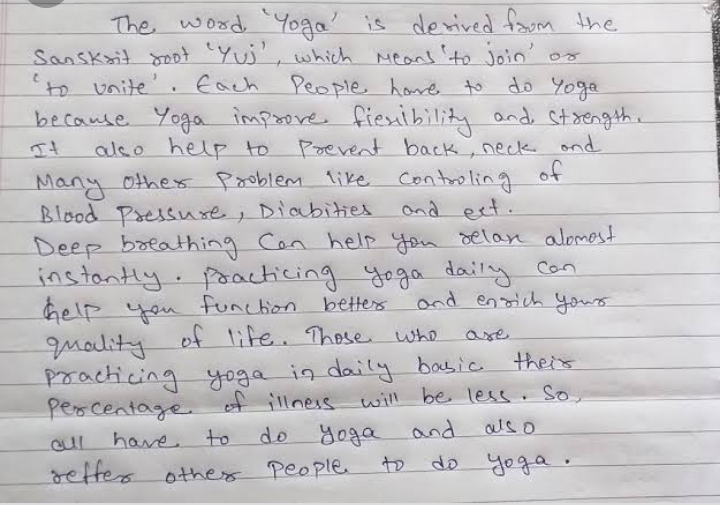 The word 'Yoga' is derived from the
Sanskrit root 'Yuj', which means 'to join' or
'to unite'. Each People have to do Yoga
because Yoga improve flexibility and strength.
It also help to Prevent back, neck and
Many other Problem like controling of
Blood Pressure, Diabities and ect.
Deep breathing Can help you relax alomost
instantly. Practicing yoga daily can
help you function better and enrich your
quality of life. Those who are
practicing yoga in daily basic their
Percentage of illness will be less. So,
all have to do yoga and also
reffer other People to do yoga.